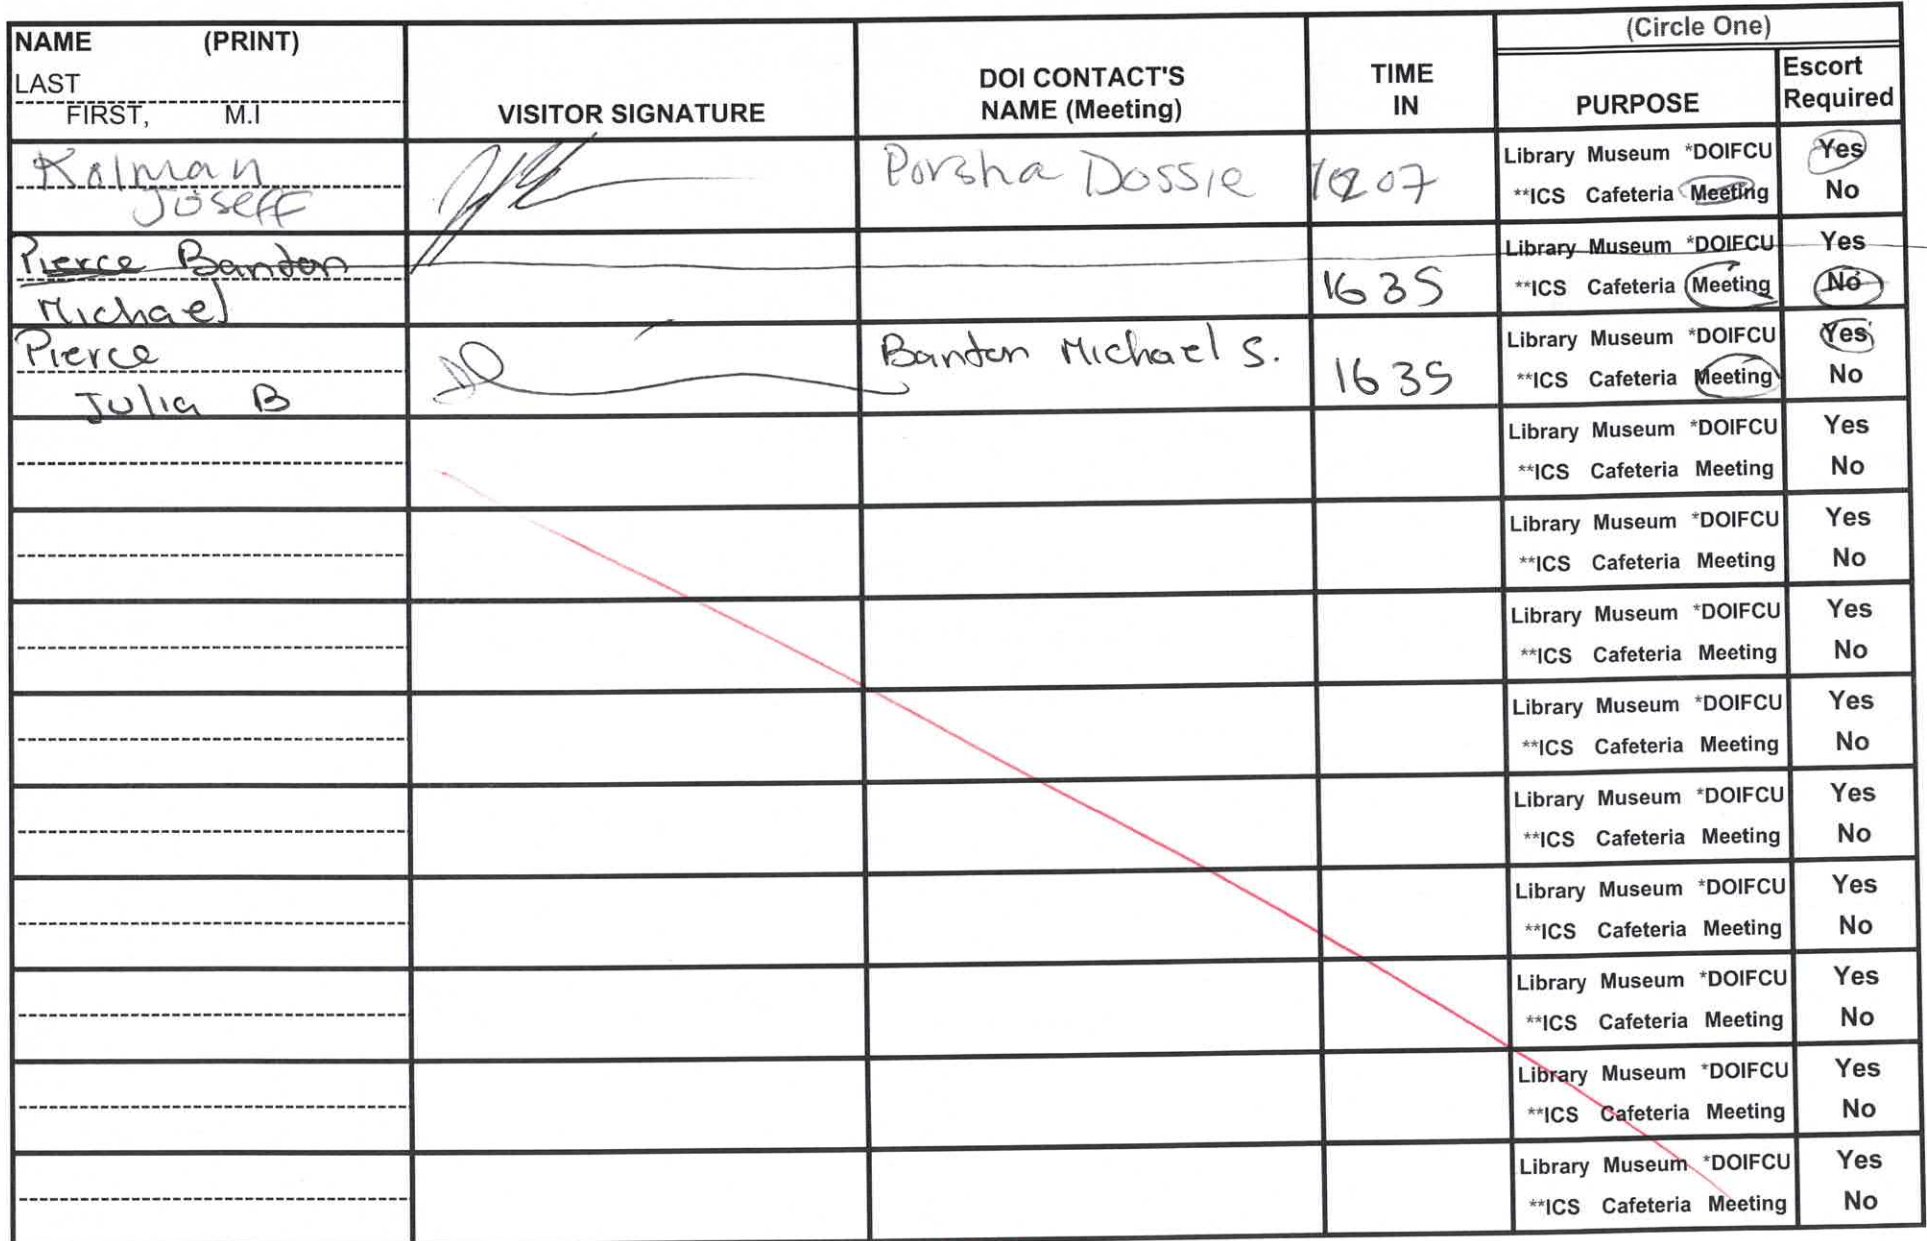 NAME (PRINT)
LAST
FIRST, M.I
VISITOR SIGNATURE
DOI CONTACT'S
NAME (Meeting)
TIME
IN
(Circle One)
PURPOSE
Escort
Required
Kalman
Joseff
Porsha Dossie
Library Museum *DOIFCU Yes
**ICS Cafeteria Meeting No
Pierce Banton
Michael
1635
Library Museum *DOIFCU Yes
**ICS Cafeteria Meeting No
Pierce
Julia B
Banton Michael S.
1635
Library Museum *DOIFCU Yes
**ICS Cafeteria Meeting No
Library Museum *DOIFCU Yes
**ICS Cafeteria Meeting No
Library Museum *DOIFCU Yes
**ICS Cafeteria Meeting No
Library Museum *DOIFCU Yes
**ICS Cafeteria Meeting No
Library Museum *DOIFCU Yes
**ICS Cafeteria Meeting No
Library Museum *DOIFCU Yes
**ICS Cafeteria Meeting No
Library Museum *DOIFCU Yes
**ICS Cafeteria Meeting No
Library Museum *DOIFCU Yes
**ICS Cafeteria Meeting No
Library Museum *DOIFCU Yes
**ICS Cafeteria Meeting No
Library Museum *DOIFCU Yes
**ICS Cafeteria Meeting No